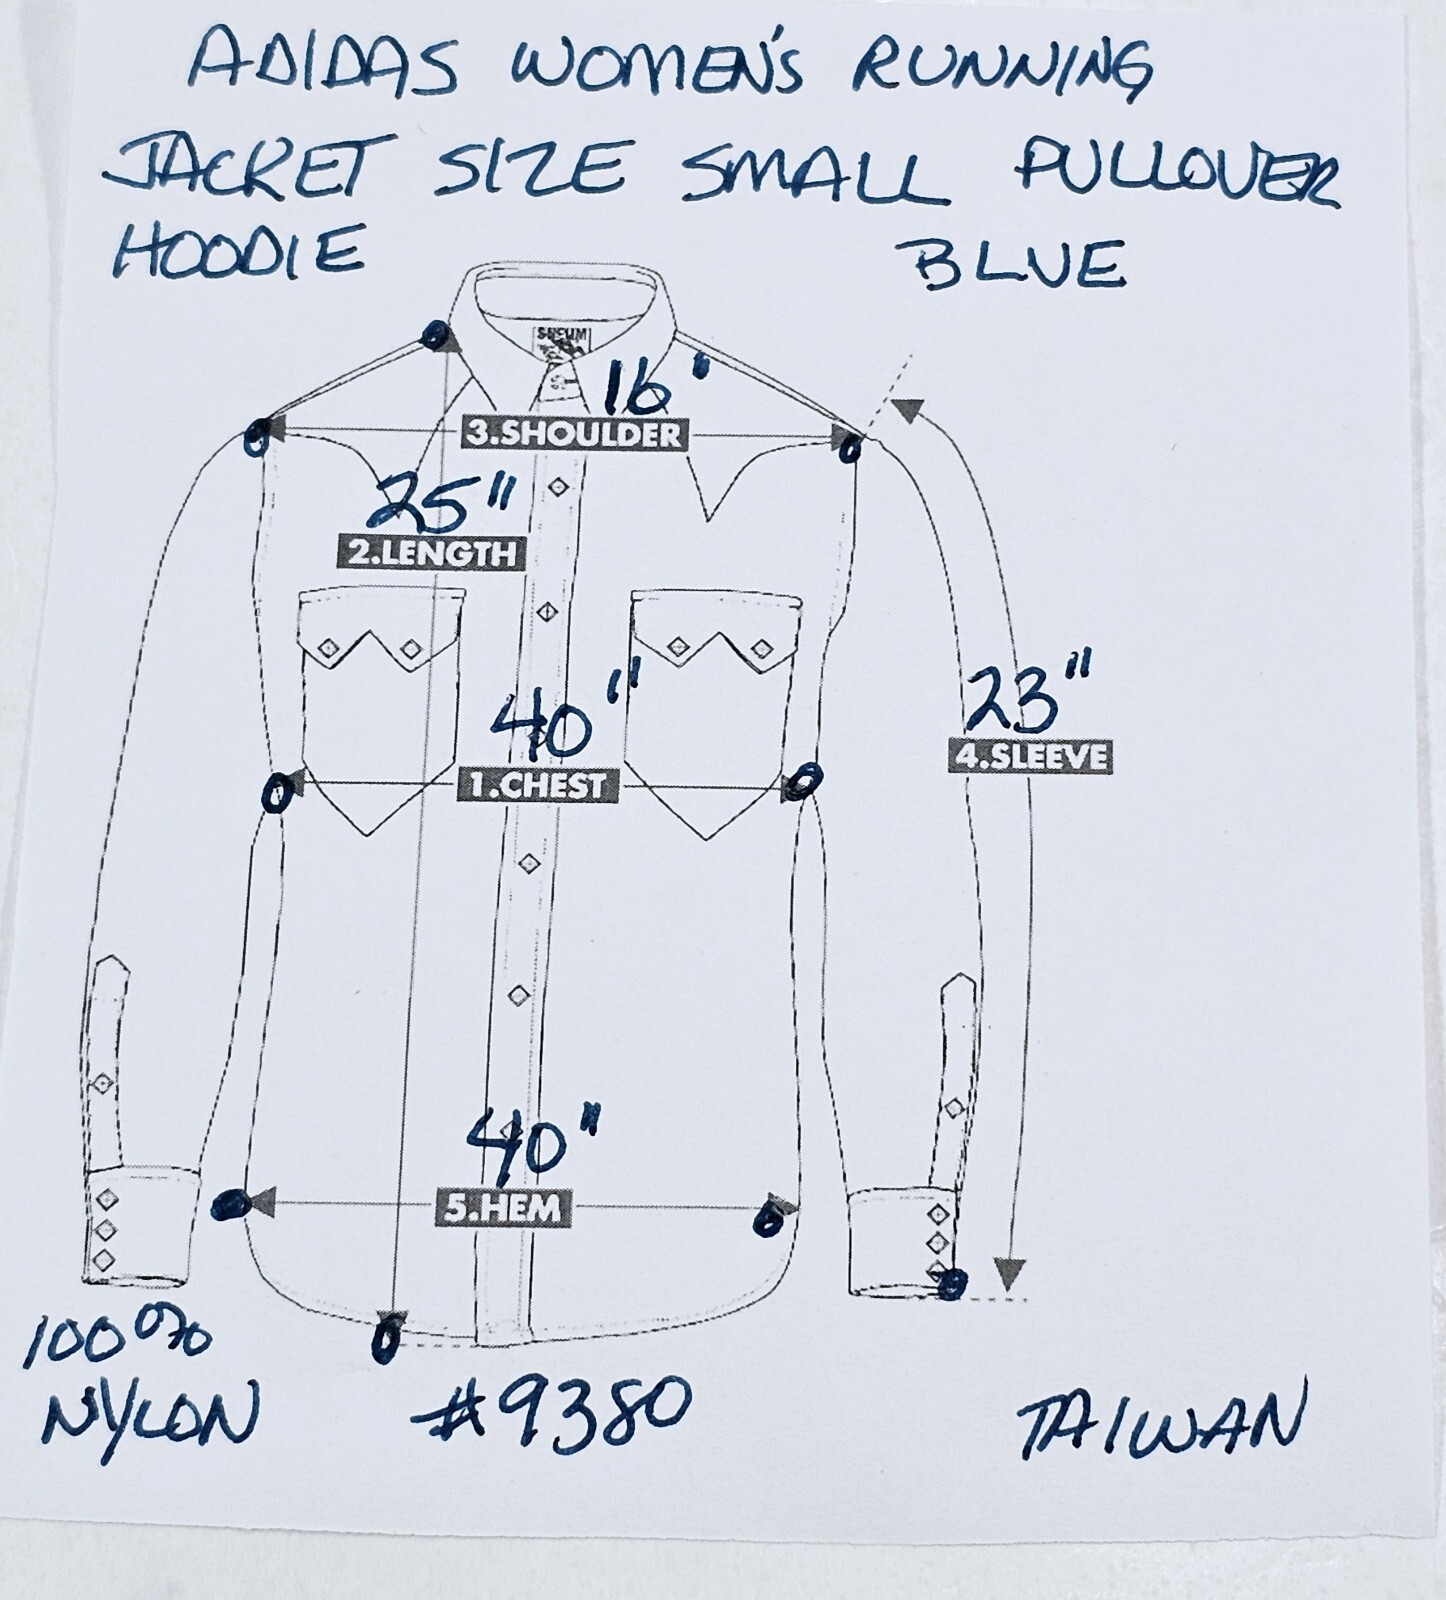 ADIDAS WOMEN'S RUNNING
JACKET SIZE SMALL PULLOVER
HOODIE BLUE
16"
3.SHOULDER
25"
2.LENGTH
40"
1.CHEST
23"
4.SLEEVE
40"
5.HEM
100%
NYLON #9380 TAIWAN